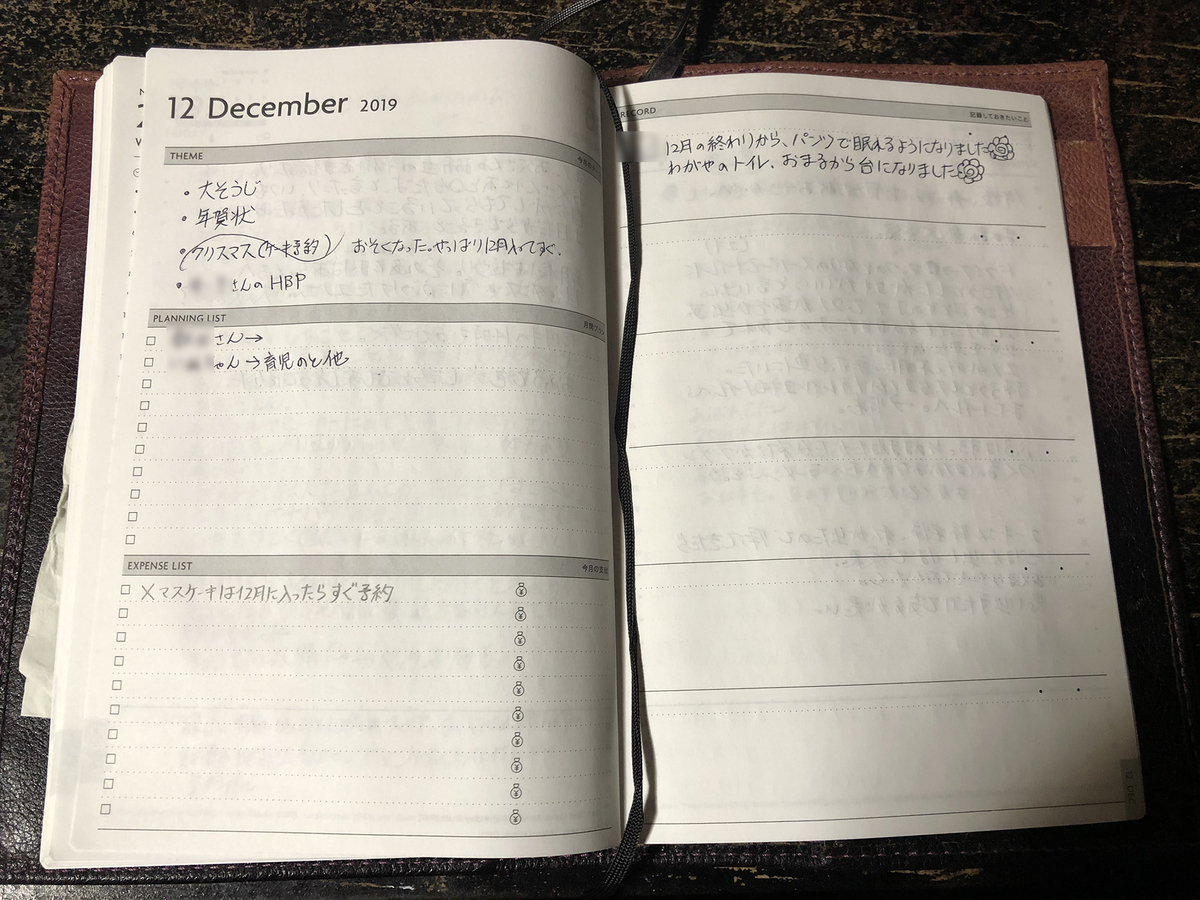 12 December 2019
THEME
・大そうじ
・年賀状
・クリスマス(ケーキ予約) おそくなった。やっぱり12月入ってすぐ。
・さんの HBP
PLANNING LIST 月間プラン
さん→
ゃん→育児のと他
EXPENSE LIST 今月の支出
Xマスケーキは12月に入ったらすぐ予約
RECORD 記録しておきたいこと
12月の終わりから、パンツで眠れるようになりました
わがやのトイレ、おまるから台になりました
12 DEC